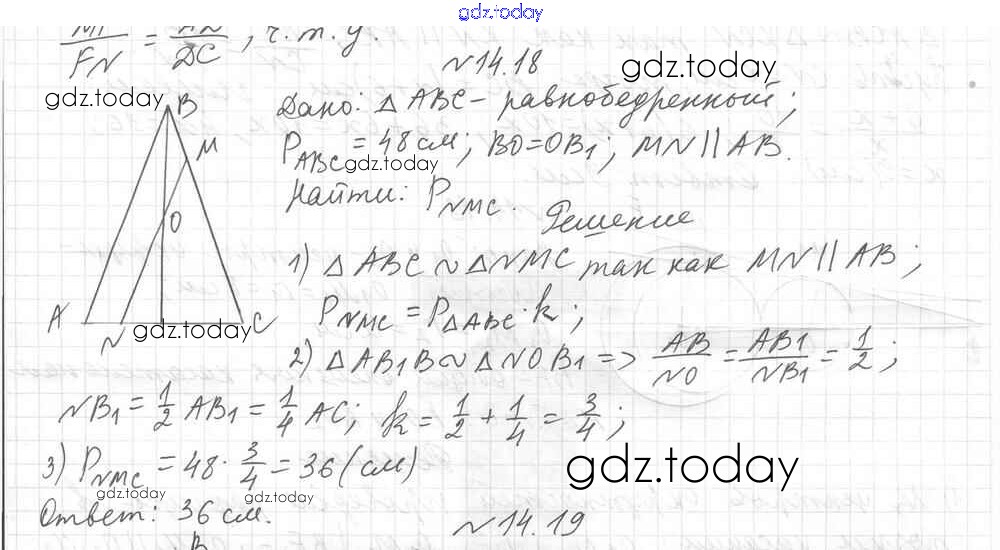 gdz.today
FN = DC, ч. т. у.
№14.18
gdz.today
gdz.today
Дано: △ ABC - равнобедренный;
P ABC = 48 см; BO = OB₁; MN || AB.
gdz.today
Найти: P NMC.
Решение
1) △ ABC ~ △ NMC так как MN || AB;
P NMC = P △ABC · k;
B
M
O
A
N
C
gdz.today
2) △ AB₁B ~ △ NOB₁ => AB/NO = AB1/NB₁ = 1/2;
NB₁ = 1/2 AB₁ = 1/4 AC; k = 1/2 + 1/4 = 3/4;
3) P NMC = 48 · 3/4 = 36 (см)
gdz.today
gdz.today
gdz.today
Ответ: 36 см.
№14.19
B